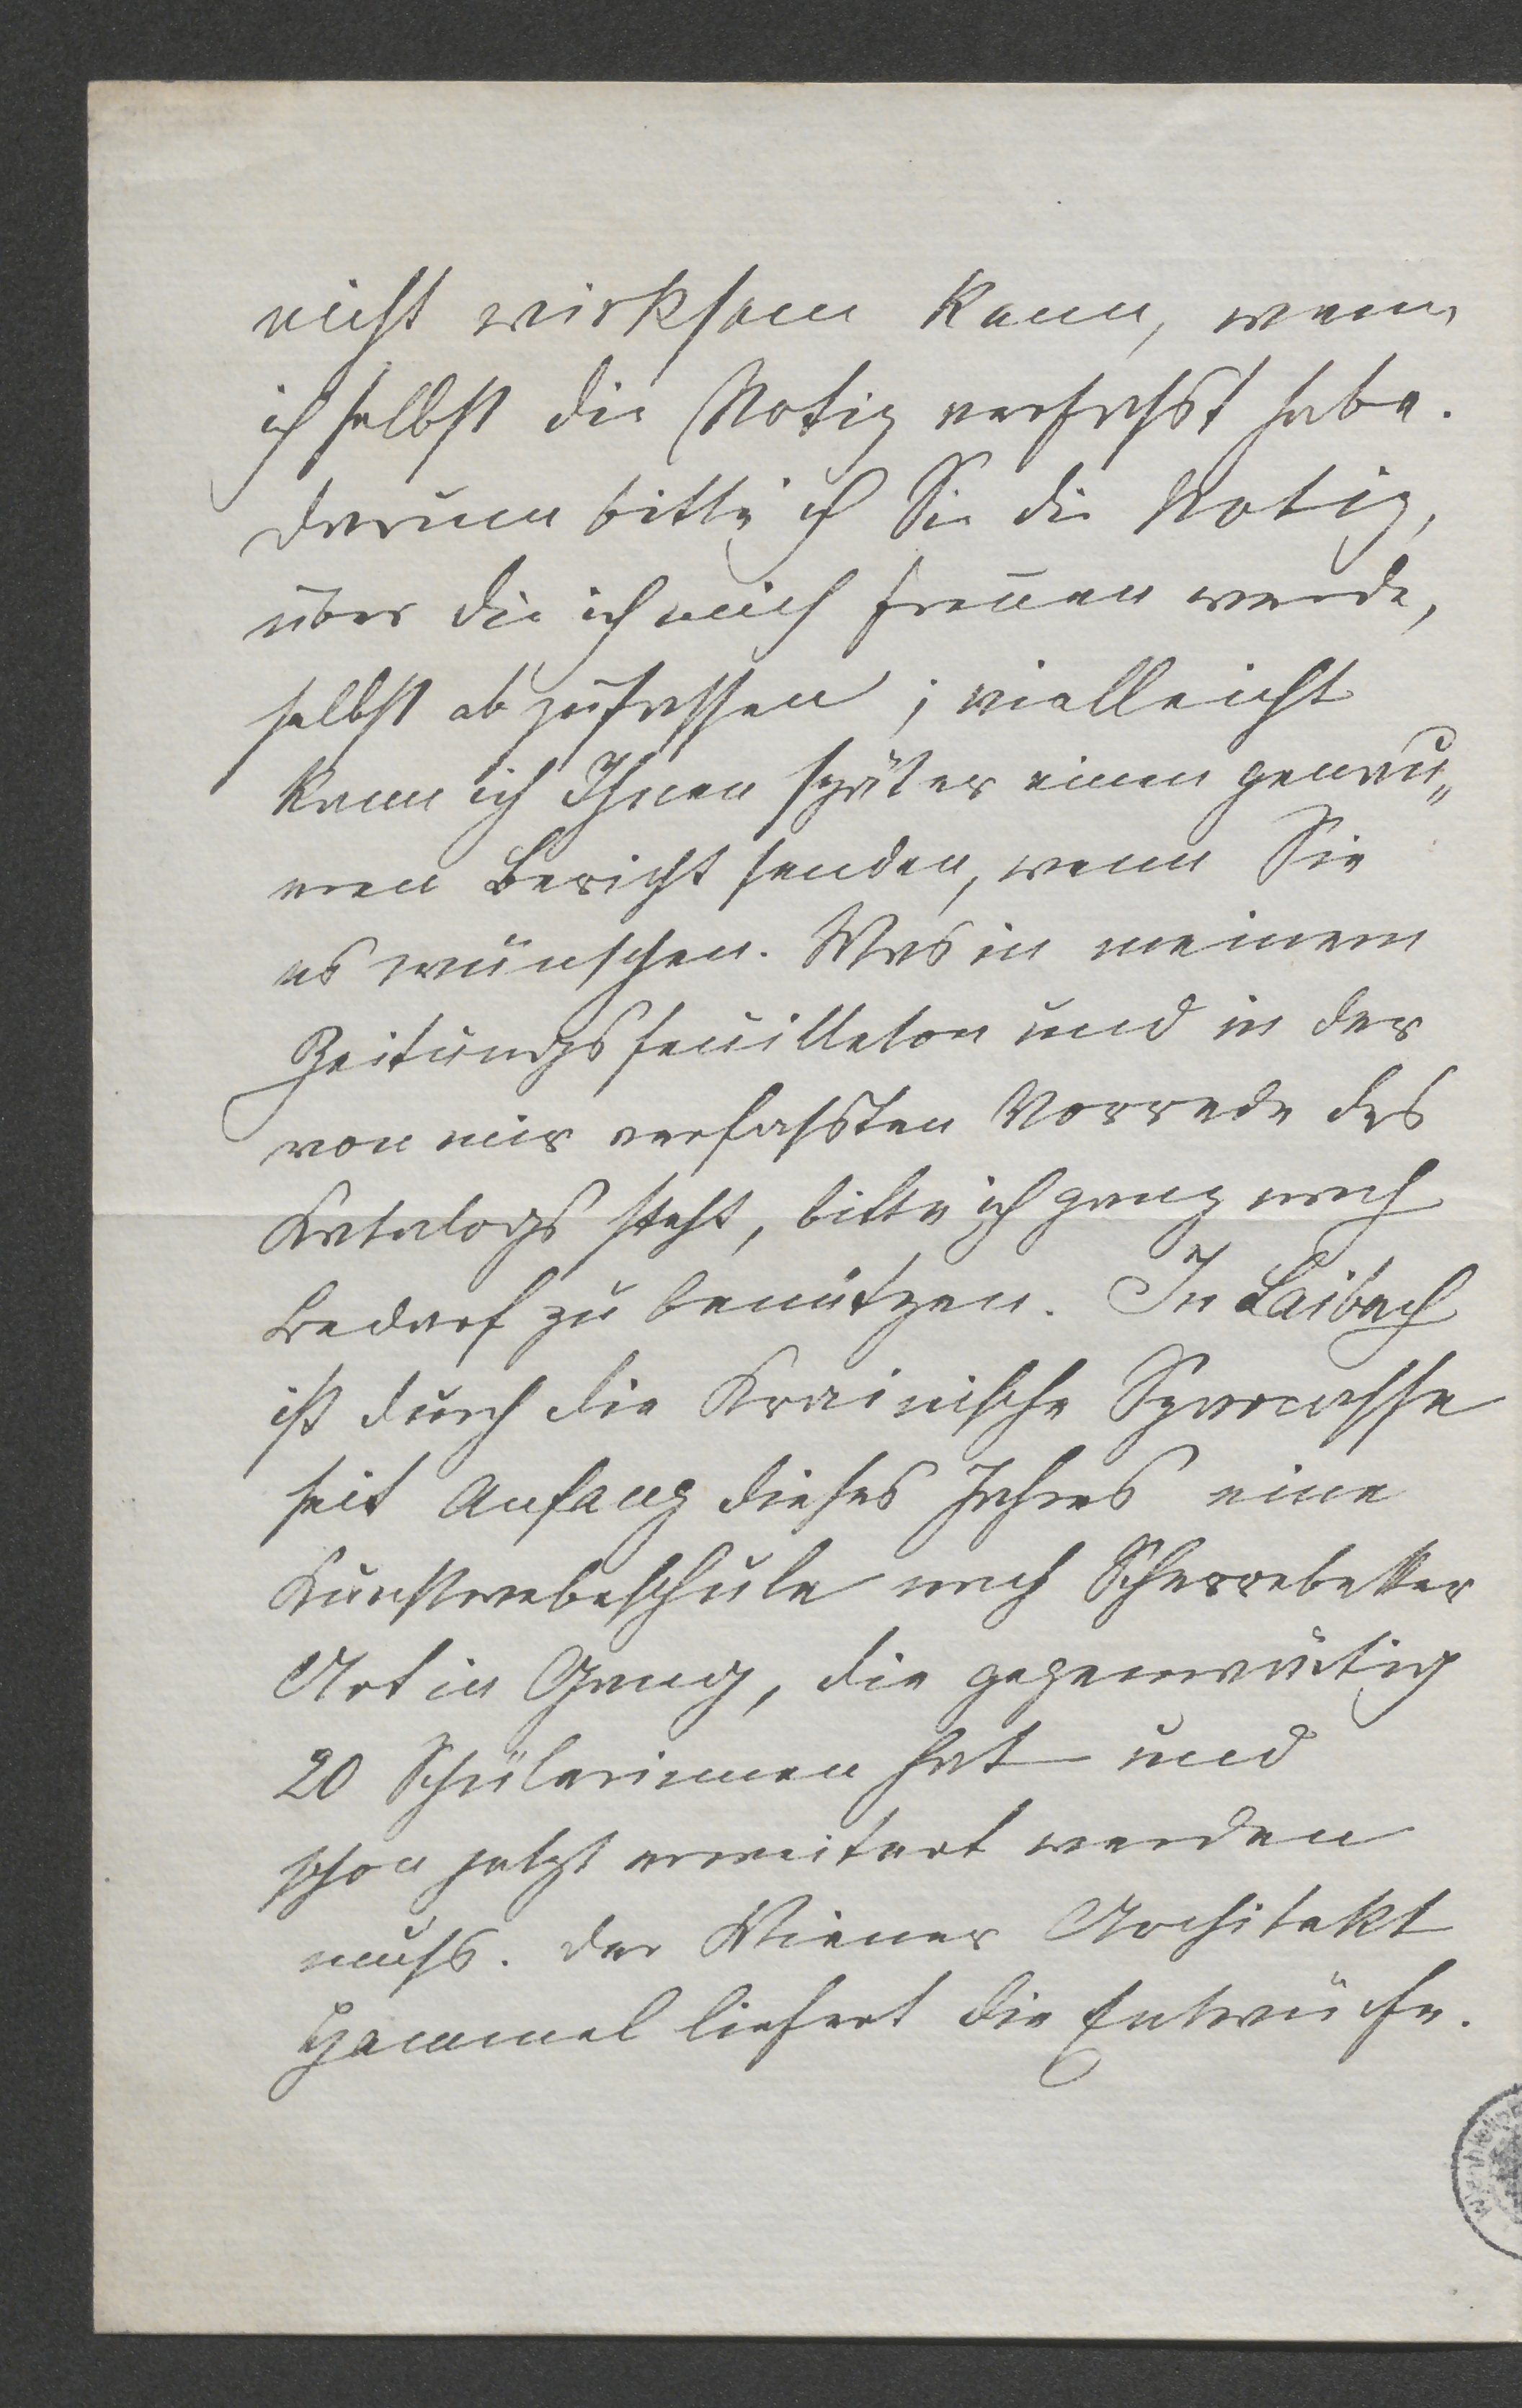 nicht wirksam kann, wenn
ich selbst die Notiz verfasst habe.
Darum bitte ich Sie die Notiz,
über die ich mich freuen werde,
selbst abzufassen; vielleicht
kann ich Ihnen später einen genau„
eren Bericht senden, wenn Sie
es wünschen. Was in meinem
Zeitungsfeuilleton und in der
von mir verfassten Vorrede des
Katalogs steht, bitte ich ganz nach
Bedarf zu benützen. In Laibach
ist durch die Krainische Sparcasse
seit Anfang dieses Jahres eine
Kunstwebeschule nach Scherrebeker
Art in Gang, die gegenwärtig
20 Schülerinnen hat und
schon jetzt erweitert werden
muss. Der Wiener Architekt
Hammel liefert die Entwürfe.